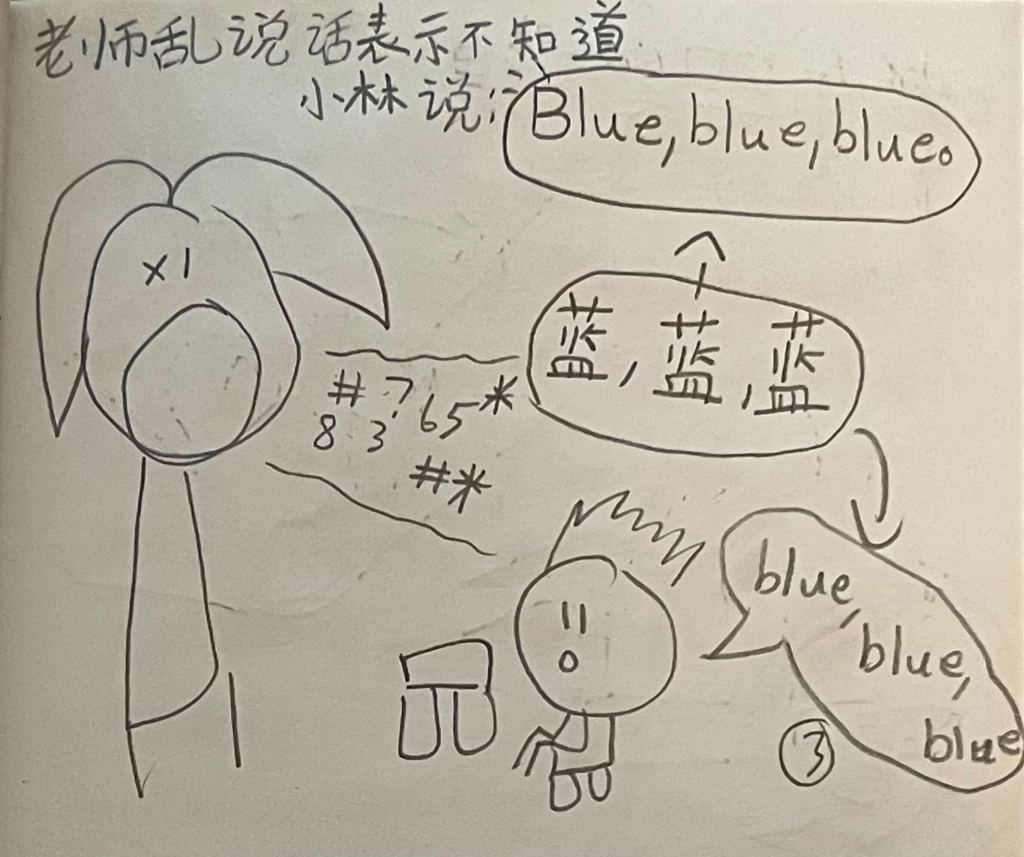 老师乱说话表示不知道.
小林说:
Blue,blue,blue。
蓝,蓝,蓝
# ? 65*
8 3
#*
blue,
blue,
blue
③